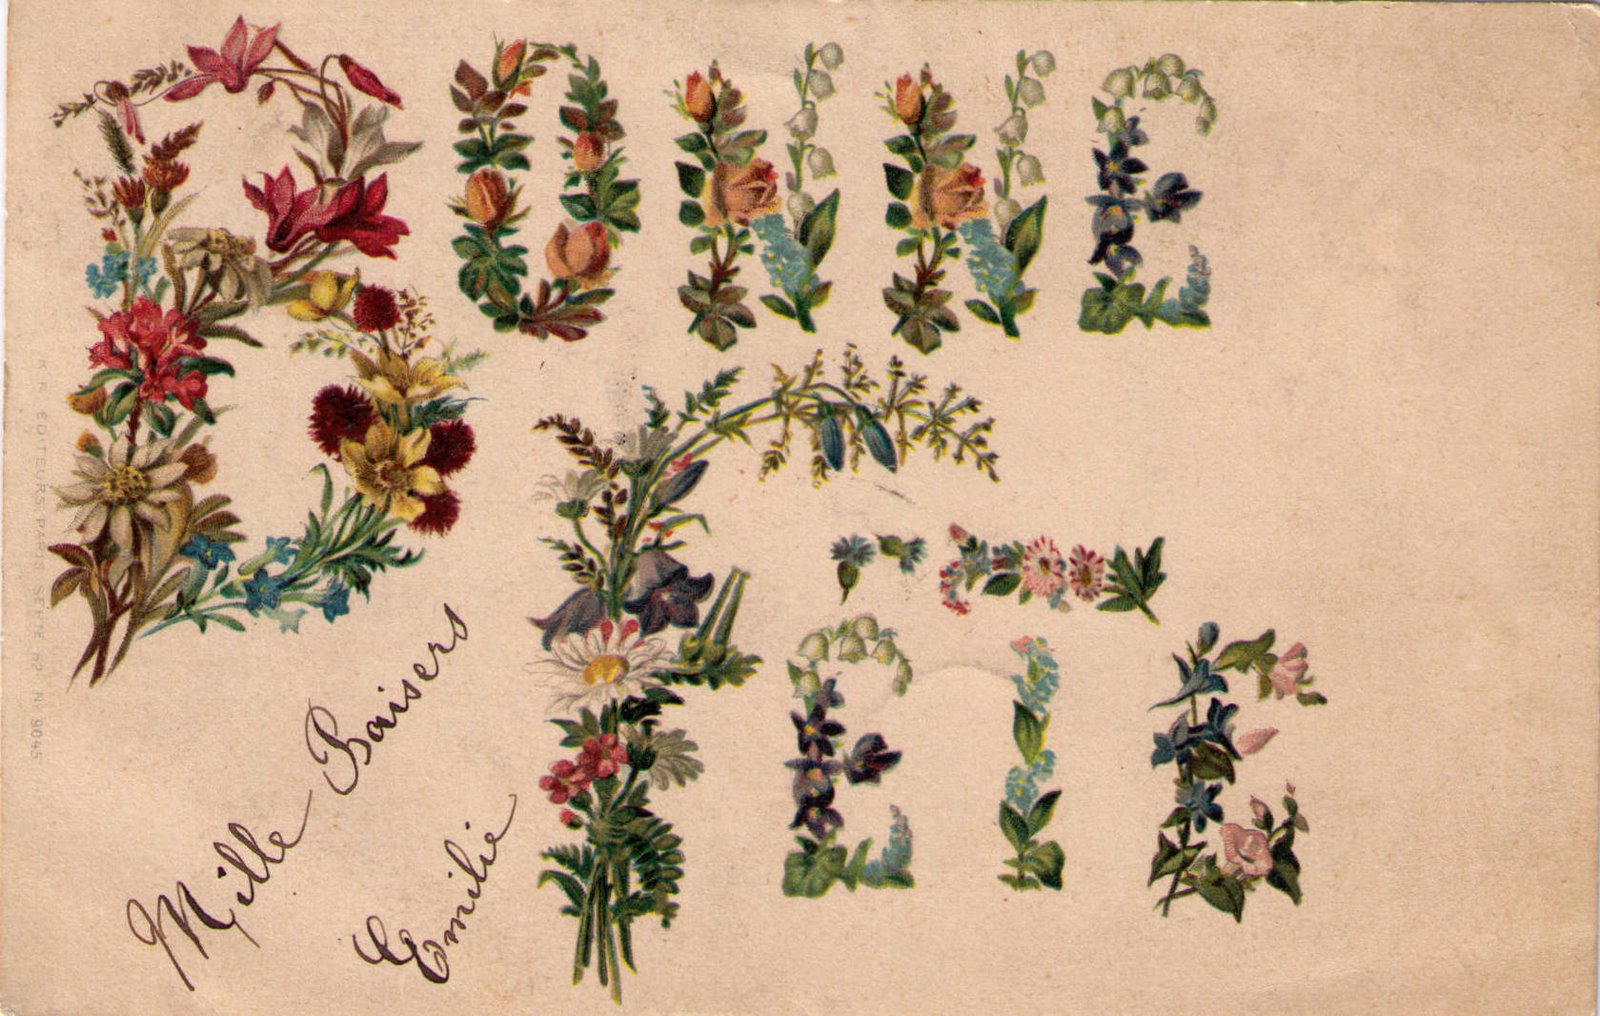 BONNE
FETE
Mille Baisers
Emilie
K. F. EDITEURS, PARIS SERIE 62 N° 9045